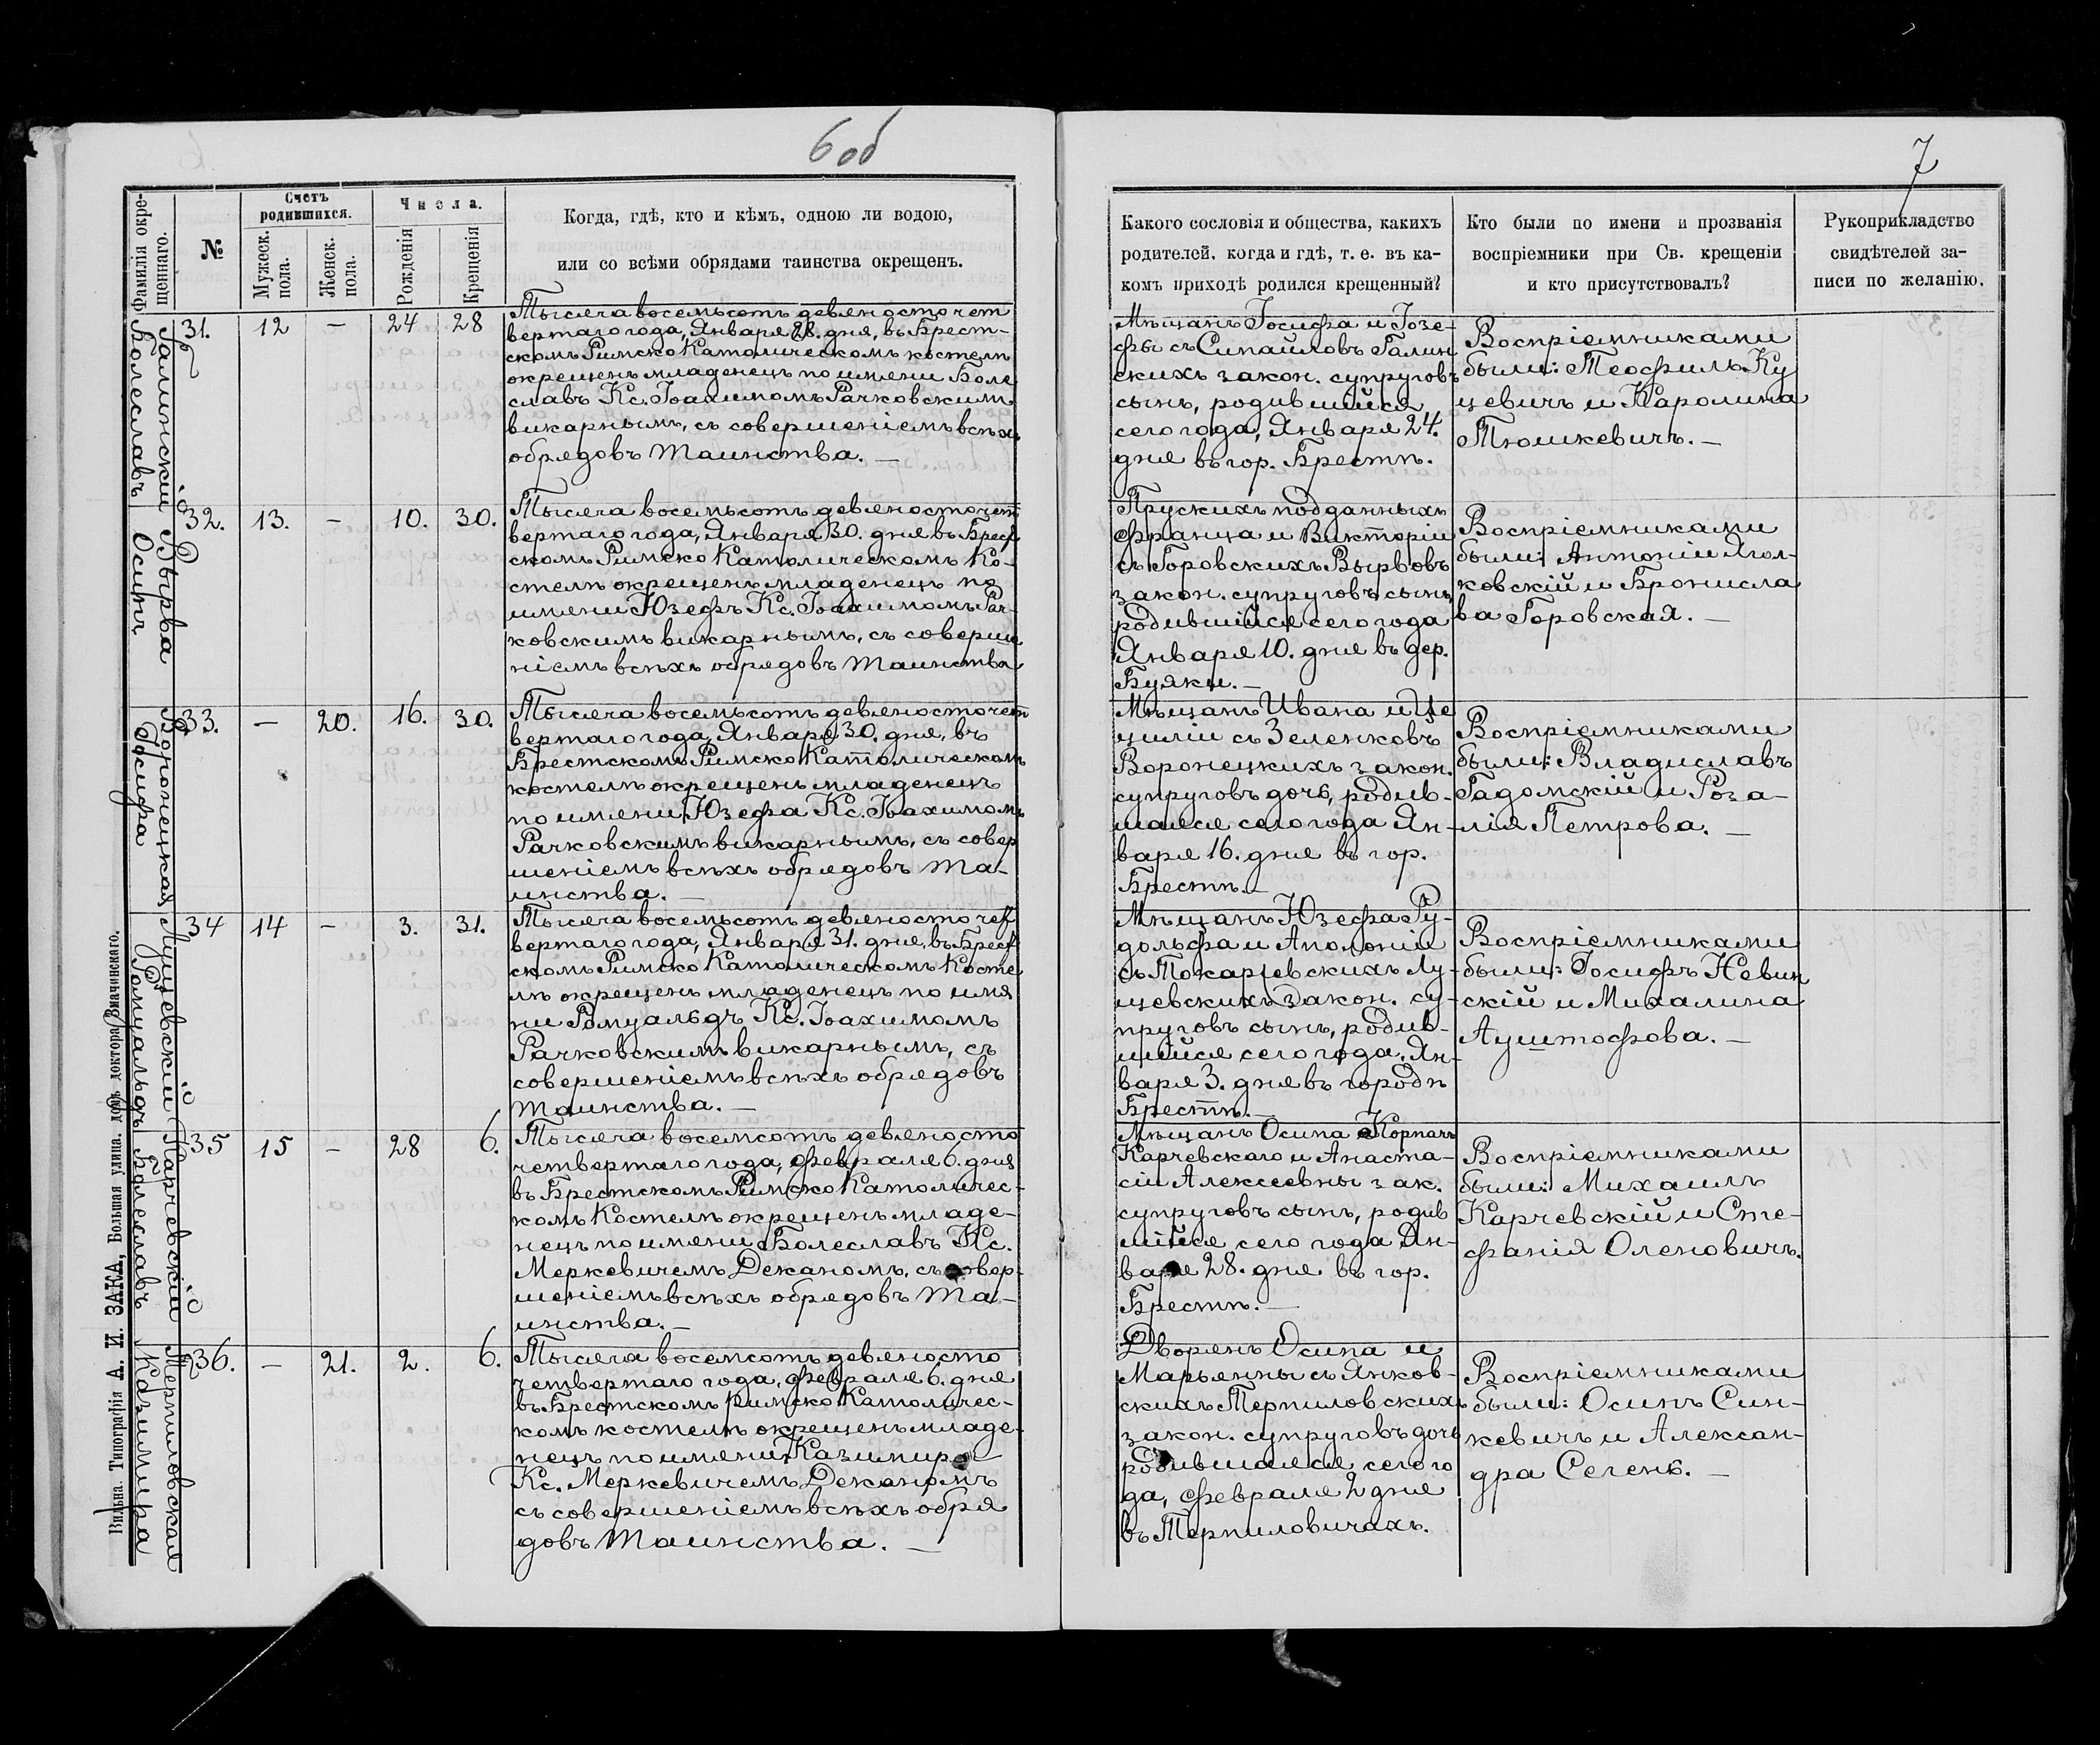 6 об
7
Фамилія окре-
щеннаго.
№
Счетъ
родившихся.
Мужеск.
пола.
Женск.
пола.
Числа.
Рожденія
Крещенія
Когда, гдѣ, кто и кѣмъ, одною ли водою,
или со всѣми обрядами таинства окрещенъ.
Какого сословія и общества, какихъ
родителей, когда и гдѣ, т. е. въ ка-
комъ приходѣ родился крещенный?
Кто были по имени и прозванія
воспріемники при Св. крещеніи
и кто присутствовалъ?
Рукоприкладство
свидѣтелей за-
писи по желанію.
Галинскій
Болеславъ
31. 12 — 24 28
Тысяча восемьсотъ девяносто чет
вертаго года, Января 28. дня, въ Брест-
скомъ Римско Католическомъ костелѣ
окрещенъ младенецъ по имени Боле
славъ Кс. Іоахимомъ Рачковскимъ
викарнымъ, съ совершеніемъ всѣхъ
обрядовъ Таинства. —
Мѣщанъ Іосифа и Іозе-
фы съ Сипайловъ Галин
скихъ закон. супруговъ
сынъ, родившійся
сего года, Января 24.
дня въ гор. Брестѣ.
Воспріемниками
были: Теофиль Ку
цевичъ и Каролина
Тюшкевичъ. —
Вырва
Осипъ
32. 13. — 10. 30.
Тысяча восемьсотъ девяносто чет
вертаго года, Января 30. дня въ Брест
скомъ Римско Католическомъ Ко-
стелѣ окрещенъ младенецъ по
имени Юзефъ Кс. Іоахимомъ Рач-
ковскимъ викарнымъ, съ соверше
ніемъ всѣхъ обрядовъ Таинства
Прускихъ подданныхъ
Франца и Викторіи
съ Горовскихъ Вырвовъ
закон. супруговъ сынъ,
родившійся сего года
Января 10. дня въ дер.
Буяки. —
Воспріемниками
были: Антоній Ягол-
ковскій и Бронисла
ва Горовская. —
Воронецкая
Юсифа
33. — 20. 16. 30.
Тысяча восемьсотъ девяносто чет
вертаго года, Января 30. дня, въ
Брестскомъ Римско Католическомъ
костелѣ окрещенъ младенецъ
по имени Юзефа Кс. Іоахимомъ
Рачковскимъ викарнымъ, съ совер
шеніемъ всѣхъ обрядовъ Та-
инства. —
Мѣщанъ Ивана и Це
циліи съ Зеленковъ
Воронецкихъ закон.
супруговъ дочь, родив-
шаяся сего года Ян-
варя 16. дня въ гор.
Брестѣ. —
Воспріемниками
были: Владиславъ
Гадомскій и Роза-
лія Петрова. —
Лущевскій
Ромуальдъ
34 14 — 3. 31.
Тысяча восемьсотъ девяносто чет
вертаго года, Января 31. дня, въ Брест
скомъ Римско Католическомъ Косте
лѣ окрещенъ младенецъ по име
ни Ромуальдъ Кс. Іоахимомъ
Рачковскимъ викарнымъ, съ
совершеніемъ всѣхъ обрядовъ
Таинства. —
Мѣщанъ Юзефа Ру-
дольфа и Аполоніи
съ Токаржевскихъ Лу-
щевскихъ закон. су-
пруговъ сынъ, родив-
шійся сего года, Ян-
варя 3. дня въ городѣ
Брестѣ. —
Воспріемниками
были: Іосифъ Невин
скій и Михалина
Ауштофова. —
Карчевскій
Болеславъ
35 15 — 28 6.
Тысяча восемсотъ девяносто
четвертаго года, Февраля 6. дня
въ Брестскомъ Римско Католичес-
комъ Костелѣ окрещенъ младе-
нецъ по имени Болеславъ Кс.
Меркевичемъ Деканомъ, съ совер-
шеніемъ всѣхъ обрядовъ Та-
инства. —
Мѣщанъ Осипа Корпачъ
Карчевскаго и Анаста-
сіи Алексеевны зак.
супруговъ сынъ, родив
шійся сего года Ян-
варя 28. дня въ гор.
Брестѣ. —
Воспріемниками
были: Михаилъ
Карчевскій и Сте-
фанія Оленовичъ.
Терпиловская
Казимира
36. — 21. 2. 6.
Тысяча восемсотъ девяносто
четвертаго года, Февраля 6. дня
въ Брестскомъ Римско Католичес-
комъ костелѣ окрещенъ младе-
нецъ по имени Казимира
Кс. Меркевичемъ Деканомъ
съ совершеніемъ всѣхъ обря
довъ Таинства. —
Дворянъ Осипа и
Марьянны съ Янков-
скихъ Терпиловскихъ
закон. супруговъ дочь
родившаяся сего го
да, Февраля 2 дня
въ Терпиловичахъ.
Воспріемниками
были: Осипъ Син-
кевичъ и Алексан-
дра Сегень. —
Вильна. Типографія А. И. ЗАКА, Большая улица, домъ доктора Змачинскаго.